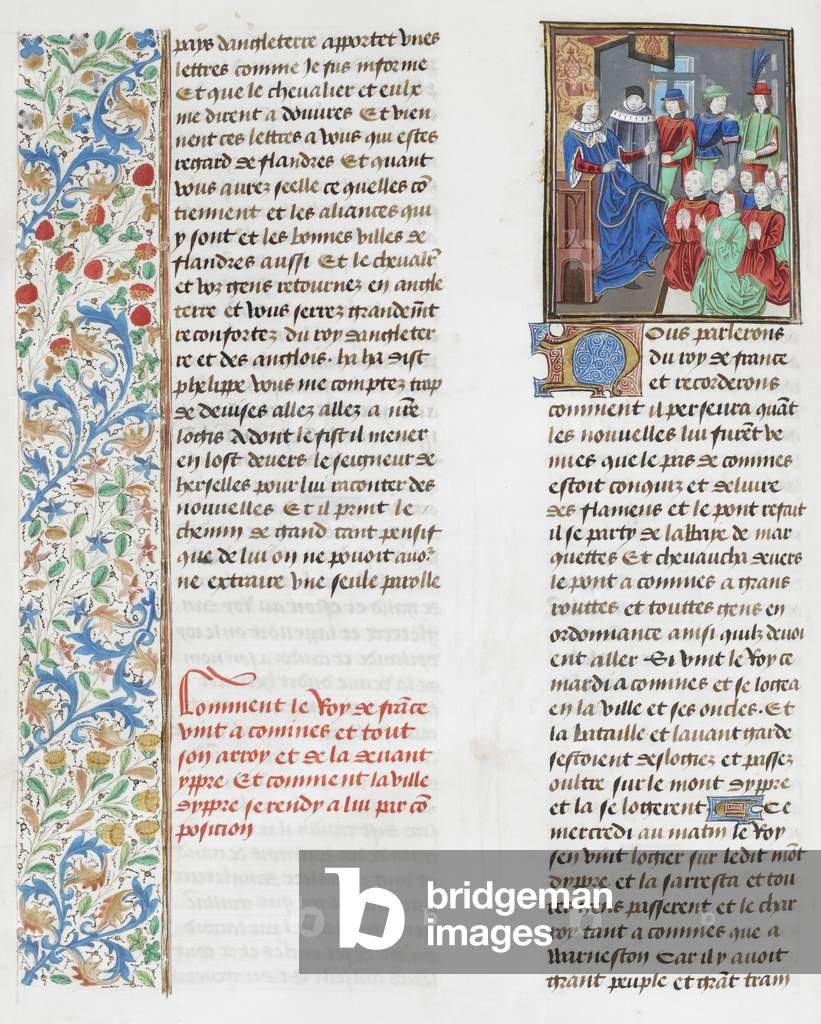 pays dangleterre apportet vnes
lettres comme Je fus informe
Et que le chevalier et eulx
me dirent a douures Et vien
nent ces lettres a vous qui estes
regard de flandres Et quant
vous aurez seelle ce quelles cō
tiennent et les aliances qui
y sont et les bonnes villes de
flandres aussi Et le chevalr̄
et voz gens retournez en angle
terre et vous serrez grandemt̄
reconfortez du roy dangleter
re et des anglois. ha ha dist
phelippe vous me comptez trop
de deuises allez allez a nr̄e
logis Adont le fist il mener
en lost deuers le seigneur de
herselles pour lui raconter des
nouuelles Et il print le
chemin de gand tant pensif
que de lui on ne pouoit auor̄
ne extraire vne seule parolle
Comment le Roy de frāce
vint a comines et tout
son arroy et de la deuant
yppre Et comment la ville
dyppre se rendy a lui par cō
position
Nous parlerons
du roy de france
et recorderons
comment il perseura quāt
les nouuelles lui furēt ve
nues que le pas de commes
estoit conquiz et deliure
des flamens et le pont refait
il se party de labbaye de mar
quettes Et cheuaucha deuers
le pont a commes a grans
routtes et touttes gens en
ordonnance ainsi quilz deuoi
ent aller Si vint le Roy ce
mardi a comines et se logea
en la ville et ses oncles. Et
la bataille et lauantgarde
sestoient deslogiez et passez
oultre sur le mont dyppre
et la se logerent Ce
mercredi au matin le Roy
sen vint logier sur ledit mōt
dyppre et la sarresta et tou
passerent et le char
roy tant a commes que a
Warneston Car il y auoit
grant peuple et grāt train
bridgeman
images
b